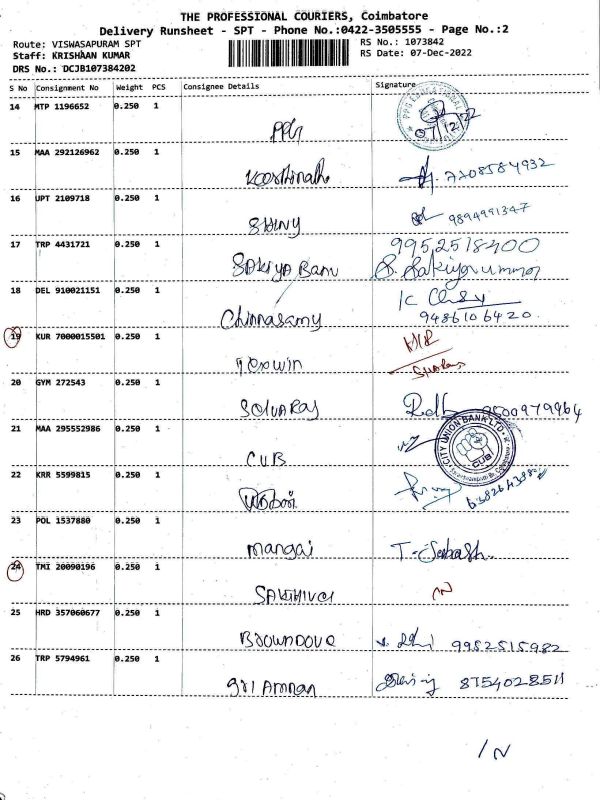 THE PROFESSIONAL COURIERS, Coimbatore
Delivery Runsheet - SPT - Phone No.:0422-3505555 - Page No.:2
Route: VISWASAPURAM SPT
RS No.: 1073842
Staff: KRISHAAN KUMAR
RS Date: 07-Dec-2022
DRS No.: DCJB107384202
S No Consignment No Weight PCS Consignee Details Signature
14 MTP 1196652 0.250 1
PPG
07/12/22
15 MAA 292126962 0.250 1
7708584932
16 UPT 2109718 0.250 1
SHINY 9894991347
17 TRP 4431721 0.250 1
9952518400
SAKIYA Banu S. Sakiyaummal
18 DEL 910021151 0.250 1
Chinnasamy 9486106420
19 KUR 7000015501 0.250 1
20 GYM 272543 0.250 1
SELVARAJ 9500979964
21 MAA 295552986 0.250 1
CUB
CITY UNION BANK LTD
CUB
22 KRR 5599815 0.250 1
23 POL 1537880 0.250 1
Mangai
24 TMI 20090196 0.250 1
SAKTHIVEL
25 HRD 357060677 0.250 1
9952515982
26 TRP 5794961 0.250 1
Sri Amman 8754028511
/N